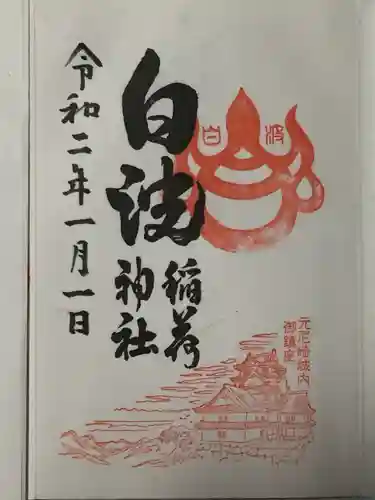 白波
稲荷
神社
令和二年一月一日
白波
元尼崎城内
御鎮座